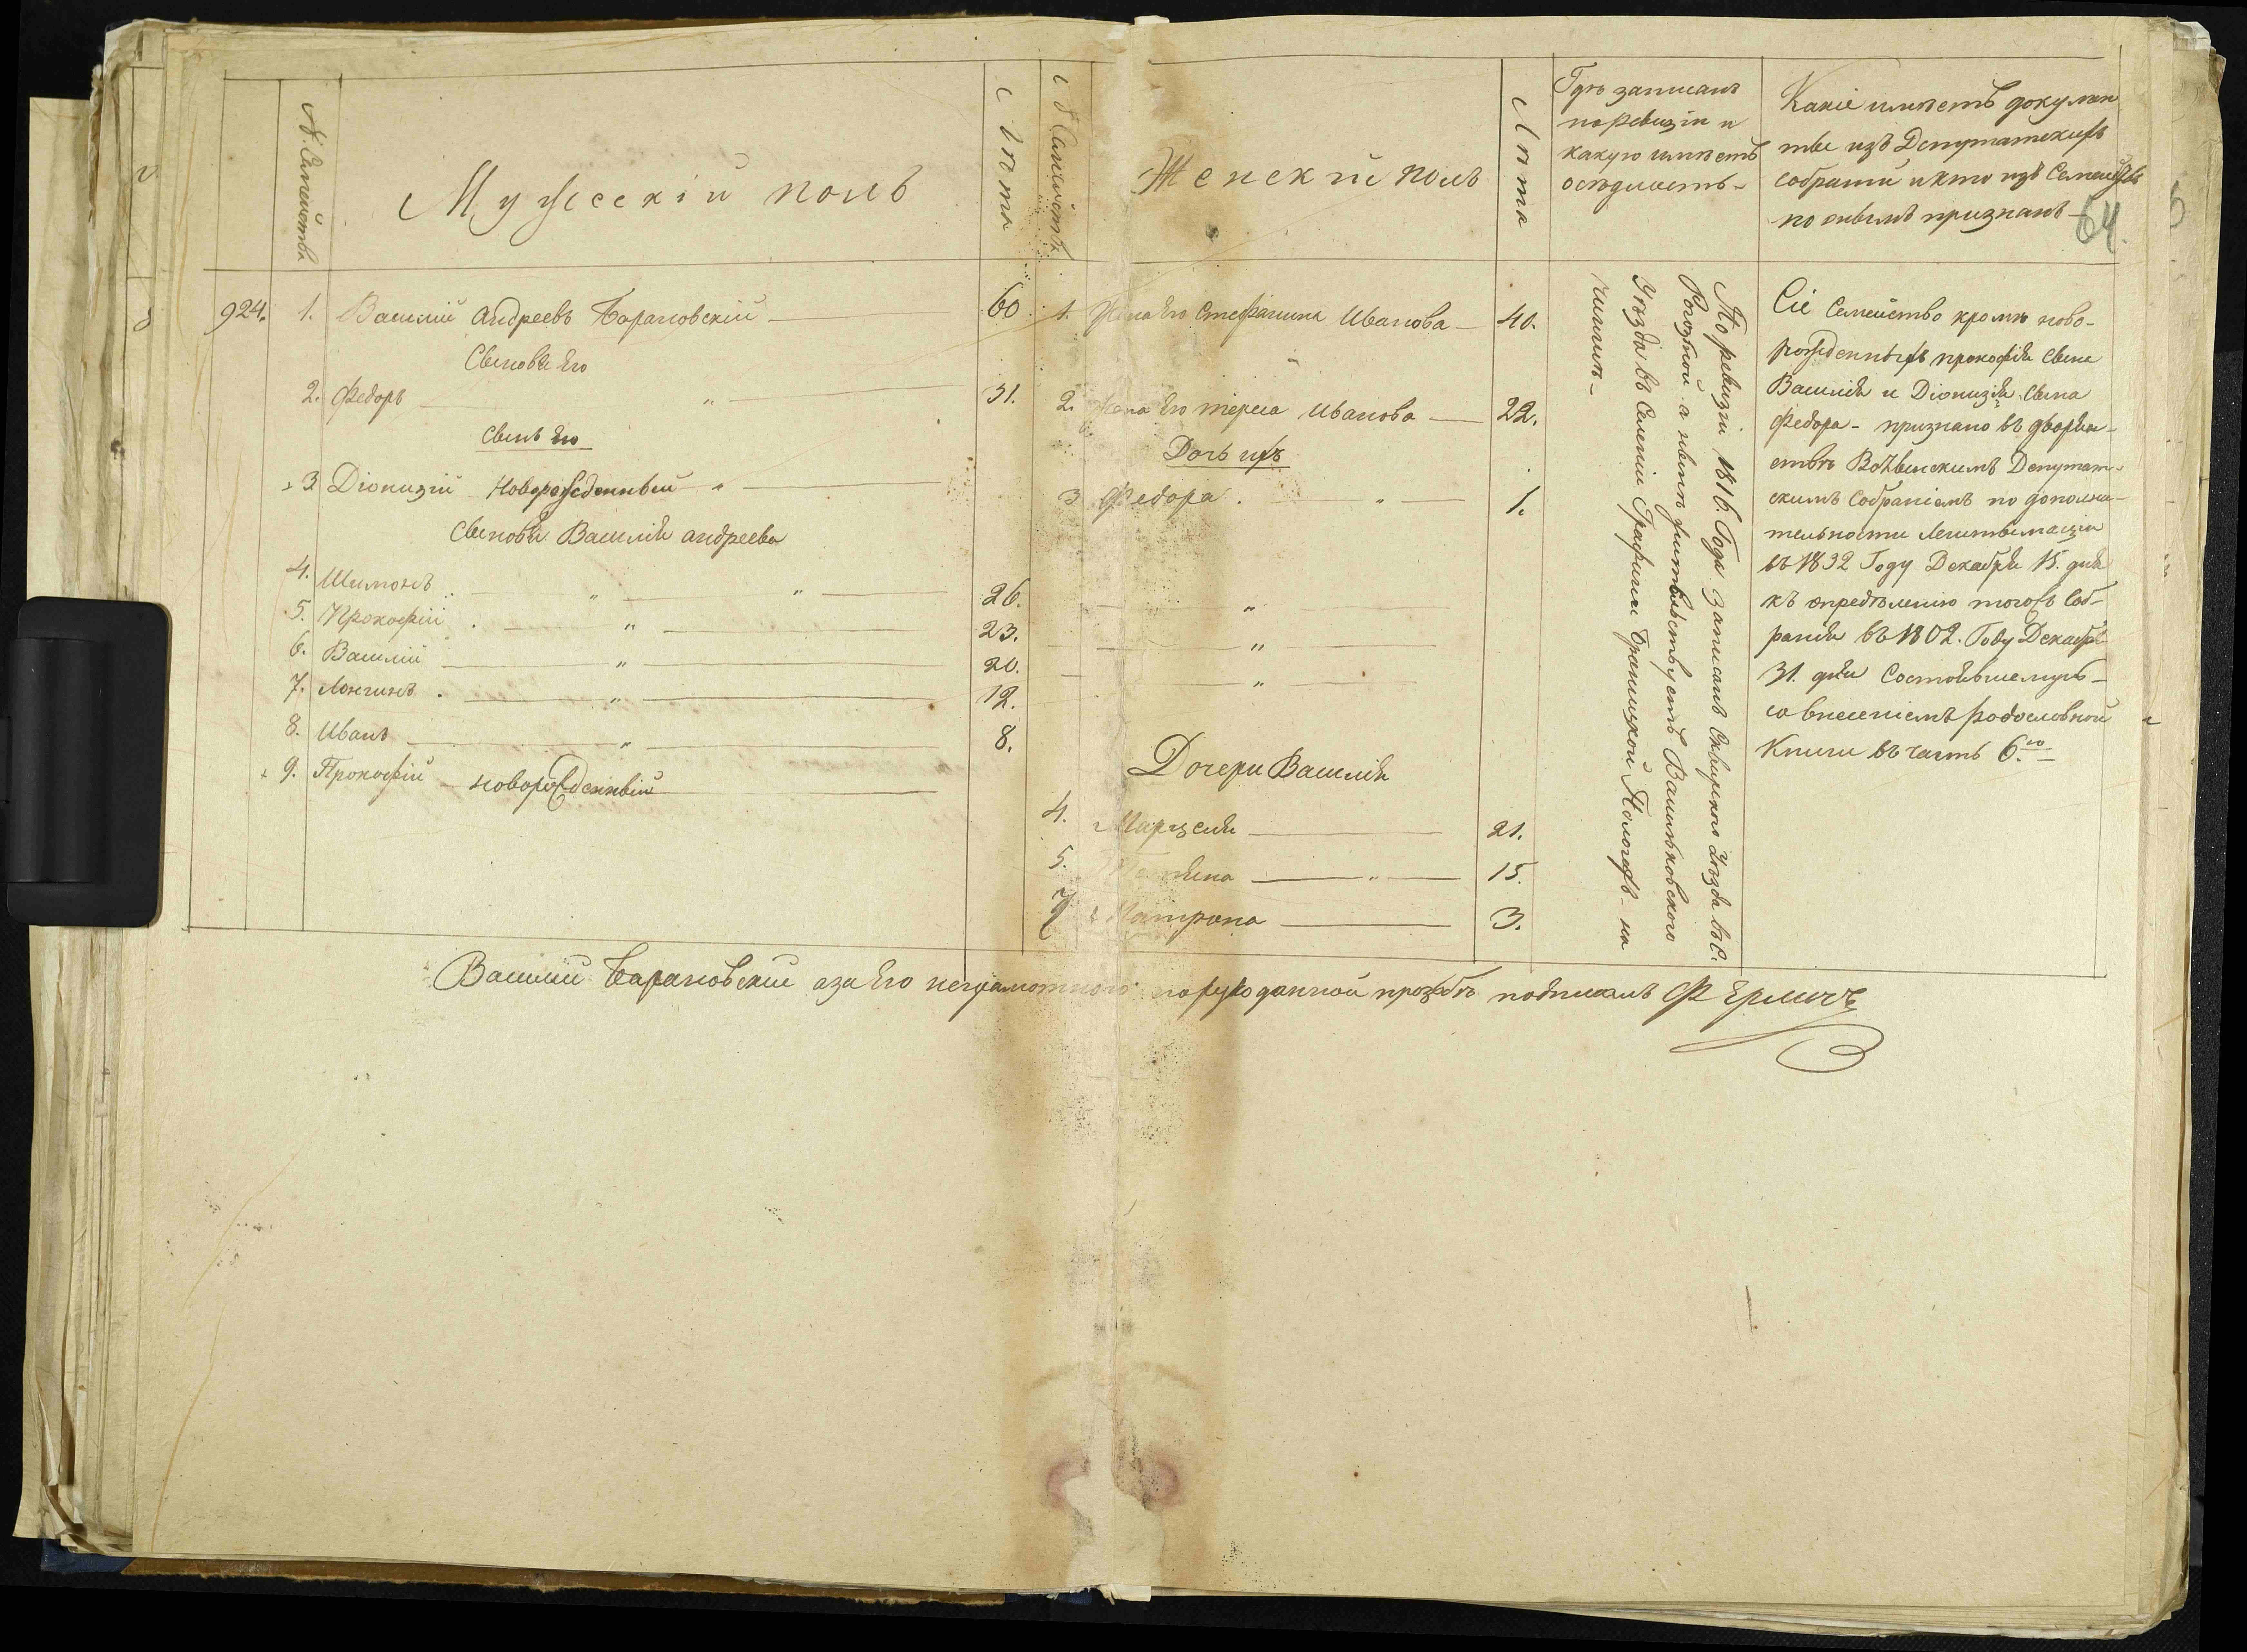 № Семейства
Мужескій полъ
Лѣта
№ Семейства
Женскій полъ
Лѣта
Гдѣ записанъ
по ревизіи и
какую имѣетъ
осѣдлость-
Какіе имѣетъ докумен
ты изъ Депутатскихъ
собраній и кто изъ Семейства
по онымъ признанъ-
64
924. 1. Василий Андреевъ Барановскій — 60
Сыновья Его
2. Федоръ — " — 31.
Сынъ Его
3 Діонизій Новорожденный " —
Сыновья Василія Андреева
4. Шимонъ — " — " — 26.
5. Прокофій . — " — 23.
6. Василій — " — 20.
7. Лонгинъ . — " — 12.
8. Иванъ — " — 8.
+ 9. Прокофій - новорожденный —
1. Жена Его Стефанина Иванова — 40.
2. Жена Его Тереса Иванова — 22.
Дочь ихъ
3 Федора . — " — 1.
— " —
— " —
— " —
Дочери Василія
4. Марцеля — 21.
5. — " — 15.
Матрона — 3.
По ревизіи 1816. Года записанъ Сквирского Уѣзда въ С.
Рогозной а нынѣ жительствуетъ Васильковского
Уѣзда въ Селеніи Графини Браницкой Пологахъ - на
чиншѣ-
Сіе Семейство кромѣ ново-
рожденныхъ Прокофія Сына
Василія и Діонизія Сына
Федора - признано въ дворян-
ствѣ Волынскимъ Депутат-
скимъ Собраніемъ по дополни-
тельности Легитимаціи
въ 1832 Году Декабря 15. дня
къ опредѣленію тогожъ Соб-
ранія въ 1802. Году Декабря
31. дня Состоявшемуся-
со внесеніемъ родословной
Книги въ часть 6.ю
Василий Барановский а за Его неграмотного по рукоданной прозьбѣ подписалъ Ф Ермичъ